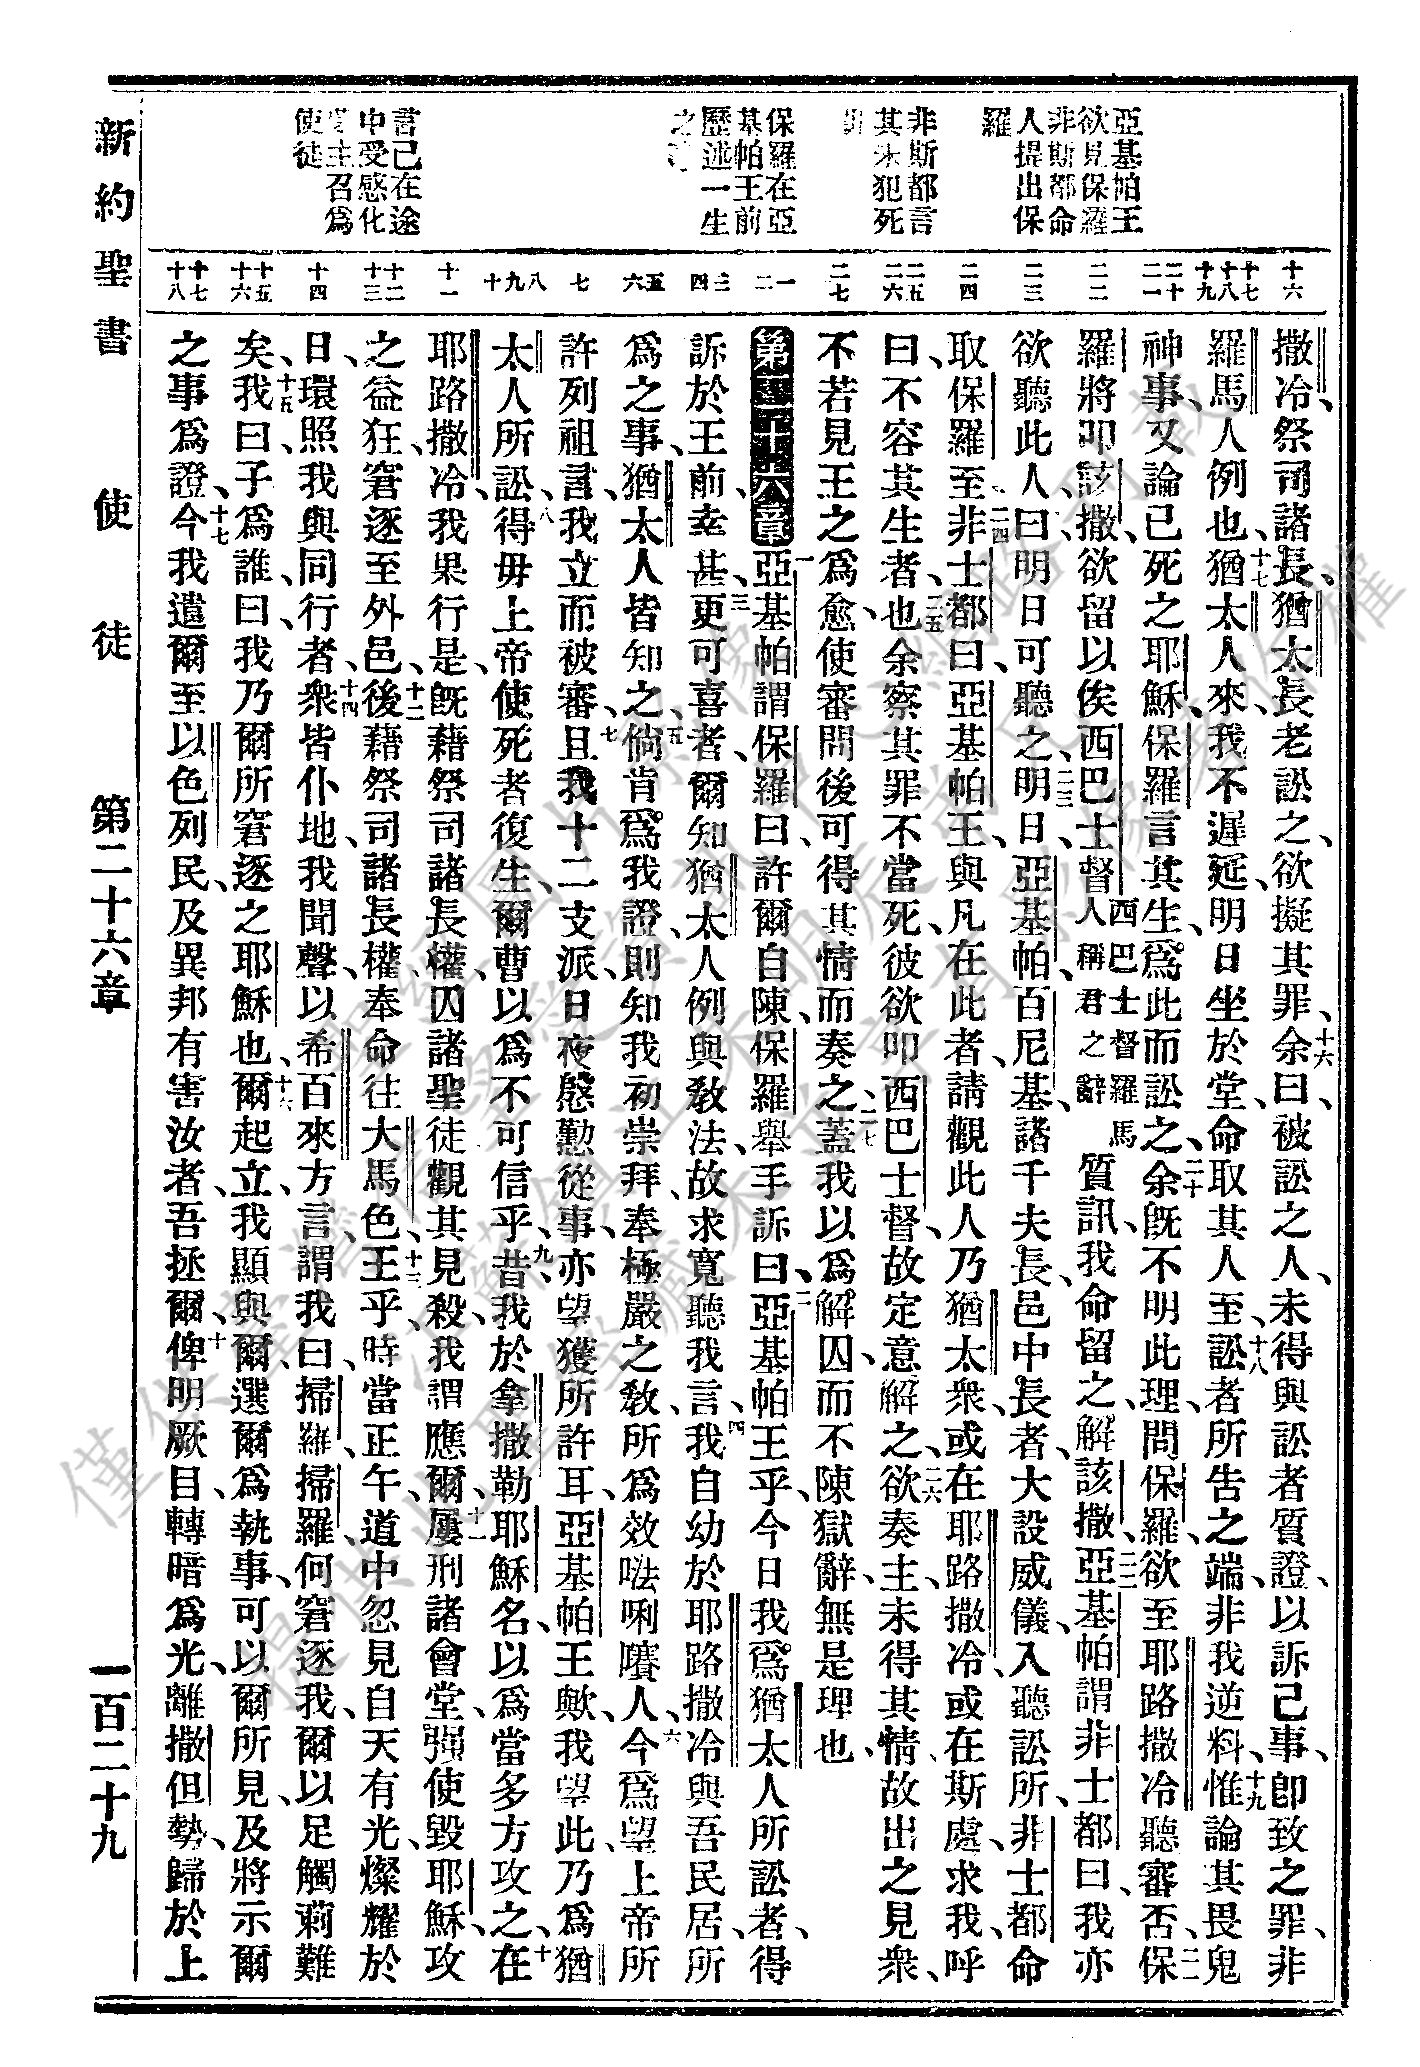 亞基帕王
欲見保羅
非斯都命
人提出保
羅
非斯都言
其未犯死
罪
保羅在亞
基帕王前
歷述一生
之
言己在途
中受感化
主召爲
使徒
十六
十七
十八
十九
二十
二一
二二
二三
二四
二五
二六
二七
一
二
三
四
五
六
七
八
九
十
十一
十二
十三
十四
十五
十六
十七
十八
撒冷、祭司諸長、猶太長老訟之、欲擬其罪、十六余曰、被訟之人、未得與訟者質證、以訴己事、卽致之罪、非
羅馬人例也、十七猶太人來、我不遲延、明日坐於堂、命取其人至、十八訟者所告之端、非我逆料、十九惟論其畏鬼
神事、又論已死之耶穌、保羅言其生、爲此而訟之、二十余旣不明此理、問保羅欲至耶路撒冷聽審否、二一保
羅將叩該撒、欲留以俟西巴士督西巴士督羅馬人稱君之辭質訊、我命留之、解該撒、二二亞基帕謂非士都曰、我亦
欲聽此人、曰、明日可聽之、二三明日、亞基帕、百尼基、諸千夫長、邑中長者、大設威儀、入聽訟所、非士都命
取保羅至、二四非士都曰、亞基帕王、與凡在此者、請觀此人、乃猶太衆、或在耶路撒冷、或在斯處、求我、呼
曰、不容其生者也、二五余察其罪不當死、彼欲叩西巴士督、故定意解之、二六欲奏主、未得其情、故出之見衆、
不若見王之爲愈、使審問後、可得其情而奏之、二七蓋我以爲解囚、而不陳獄辭、無是理也、
第二十六章 一亞基帕謂保羅曰、許爾自陳、保羅舉手訴曰、二亞基帕王乎、今日我爲猶太人所訟者、得
訴於王前、幸甚、三更可喜者、爾知猶太人例與敎法、故求寬聽我言、四我自幼於耶路撒冷、與吾民居、所
爲之事、猶太人皆知之、五倘肯爲我證、則知我初崇拜、奉極嚴之敎、所爲效𠵽唎㘔人、六今爲望上帝所
許列祖言、我立而被審、七且我十二支派、日夜慇懃從事、亦望獲所許耳、亞基帕王歟、我望此、乃爲猶
太人所訟、八得毋上帝使死者復生、爾曹以爲不可信乎、九昔我於拿撒勒耶穌名、以爲當多方攻之、十在
耶路撒冷、我果行是、旣藉祭司諸長權、囚諸聖徒、觀其見殺、我謂應爾、十一屢刑諸會堂、强使毀耶穌、攻
之益狂、窘逐至外邑、十二後藉祭司諸長權、奉命往大馬色、十三王乎、時當正午、道中忽見自天有光、燦耀於
日、環照我與同行者、十四衆皆仆地、我聞聲、以希百來方言、謂我曰、掃羅、掃羅、何窘逐我、爾以足觸莿難
矣、十五我曰、子爲誰、曰、我乃爾所窘逐之耶穌也、十六爾起立、我顯與爾、選爾爲執事、可以爾所見、及將示爾
之事爲證、十七今我遣爾至以色列民、及異邦有害汝者、吾拯爾、十俾明厥目、轉暗爲光、離撒但勢、歸於上
新約聖書 使徒 第二十六章 一百二十九